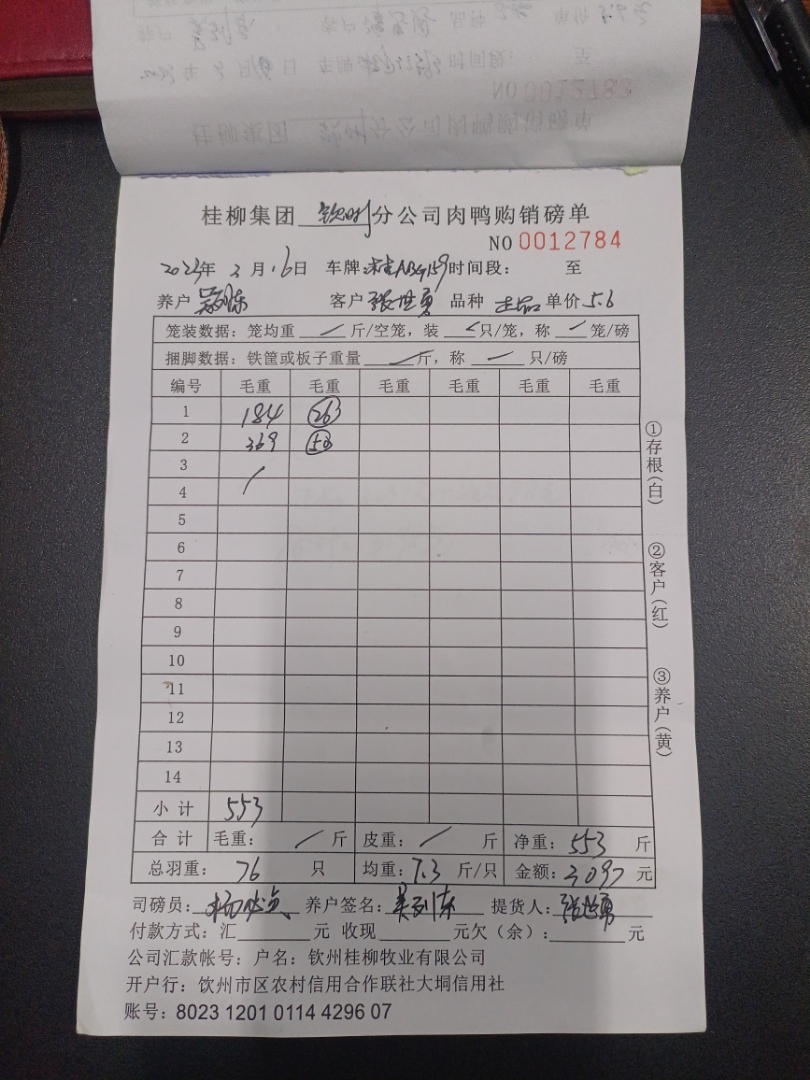 桂柳集团 钦州 分公司肉鸭购销磅单
NO 0012784
2023年 2月16日 车牌: 时间段: 至
养户 客户 张世勇 品种 正品 单价 5.6
笼装数据: 笼均重 斤/空笼, 装 只/笼, 称 笼/磅
捆脚数据: 铁筐或板子重量 斤, 称 只/磅
编号 毛重 毛重 毛重 毛重 毛重 毛重
1 184 263
2 369 50
3
4
5
6
7
8
9
10
11
12
13
14
小计 553
合计 毛重: 斤 皮重: 斤 净重: 553 斤
总羽重: 76 只 均重: 7.3 斤/只 金额: 3097 元
司磅员: 养户签名: 提货人: 张世勇
付款方式: 汇 元 收现 元欠(余): 元
公司汇款帐号: 户名: 钦州桂柳牧业有限公司
开户行: 钦州市区农村信用合作联社大垌信用社
账号: 8023 1201 0114 4296 07
①存根(白)
②客户(红)
③养户(黄)